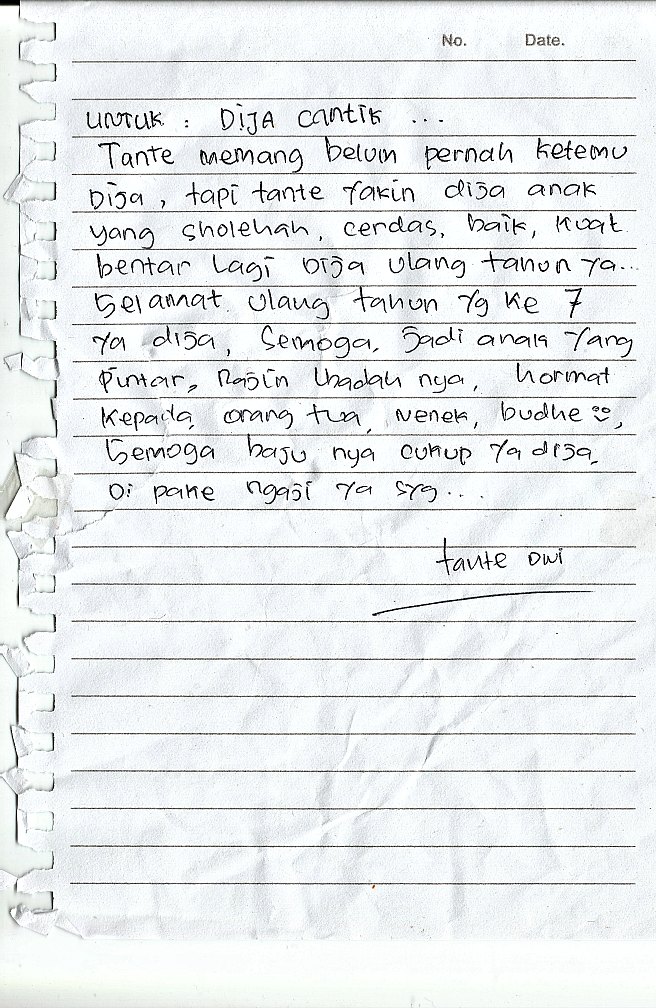 No. Date.
UNTUK : DIJA CANTIK ...
Tante memang belum pernah ketemu
Dija, tapi tante yakin dija anak
yang sholehah, cerdas, baik, kuat
bentar lagi Dija ulang tahun ya...
Selamat ulang tahun yg ke 7
ya dija, Semoga, Jadi anak yang
Pintar, Rajin Ibadah nya, hormat
kepada, orang tua, Nenek, budhe ☺,
Semoga baju nya cukup ya dija,
Di pake ngaji ya syg...
tante Dwi